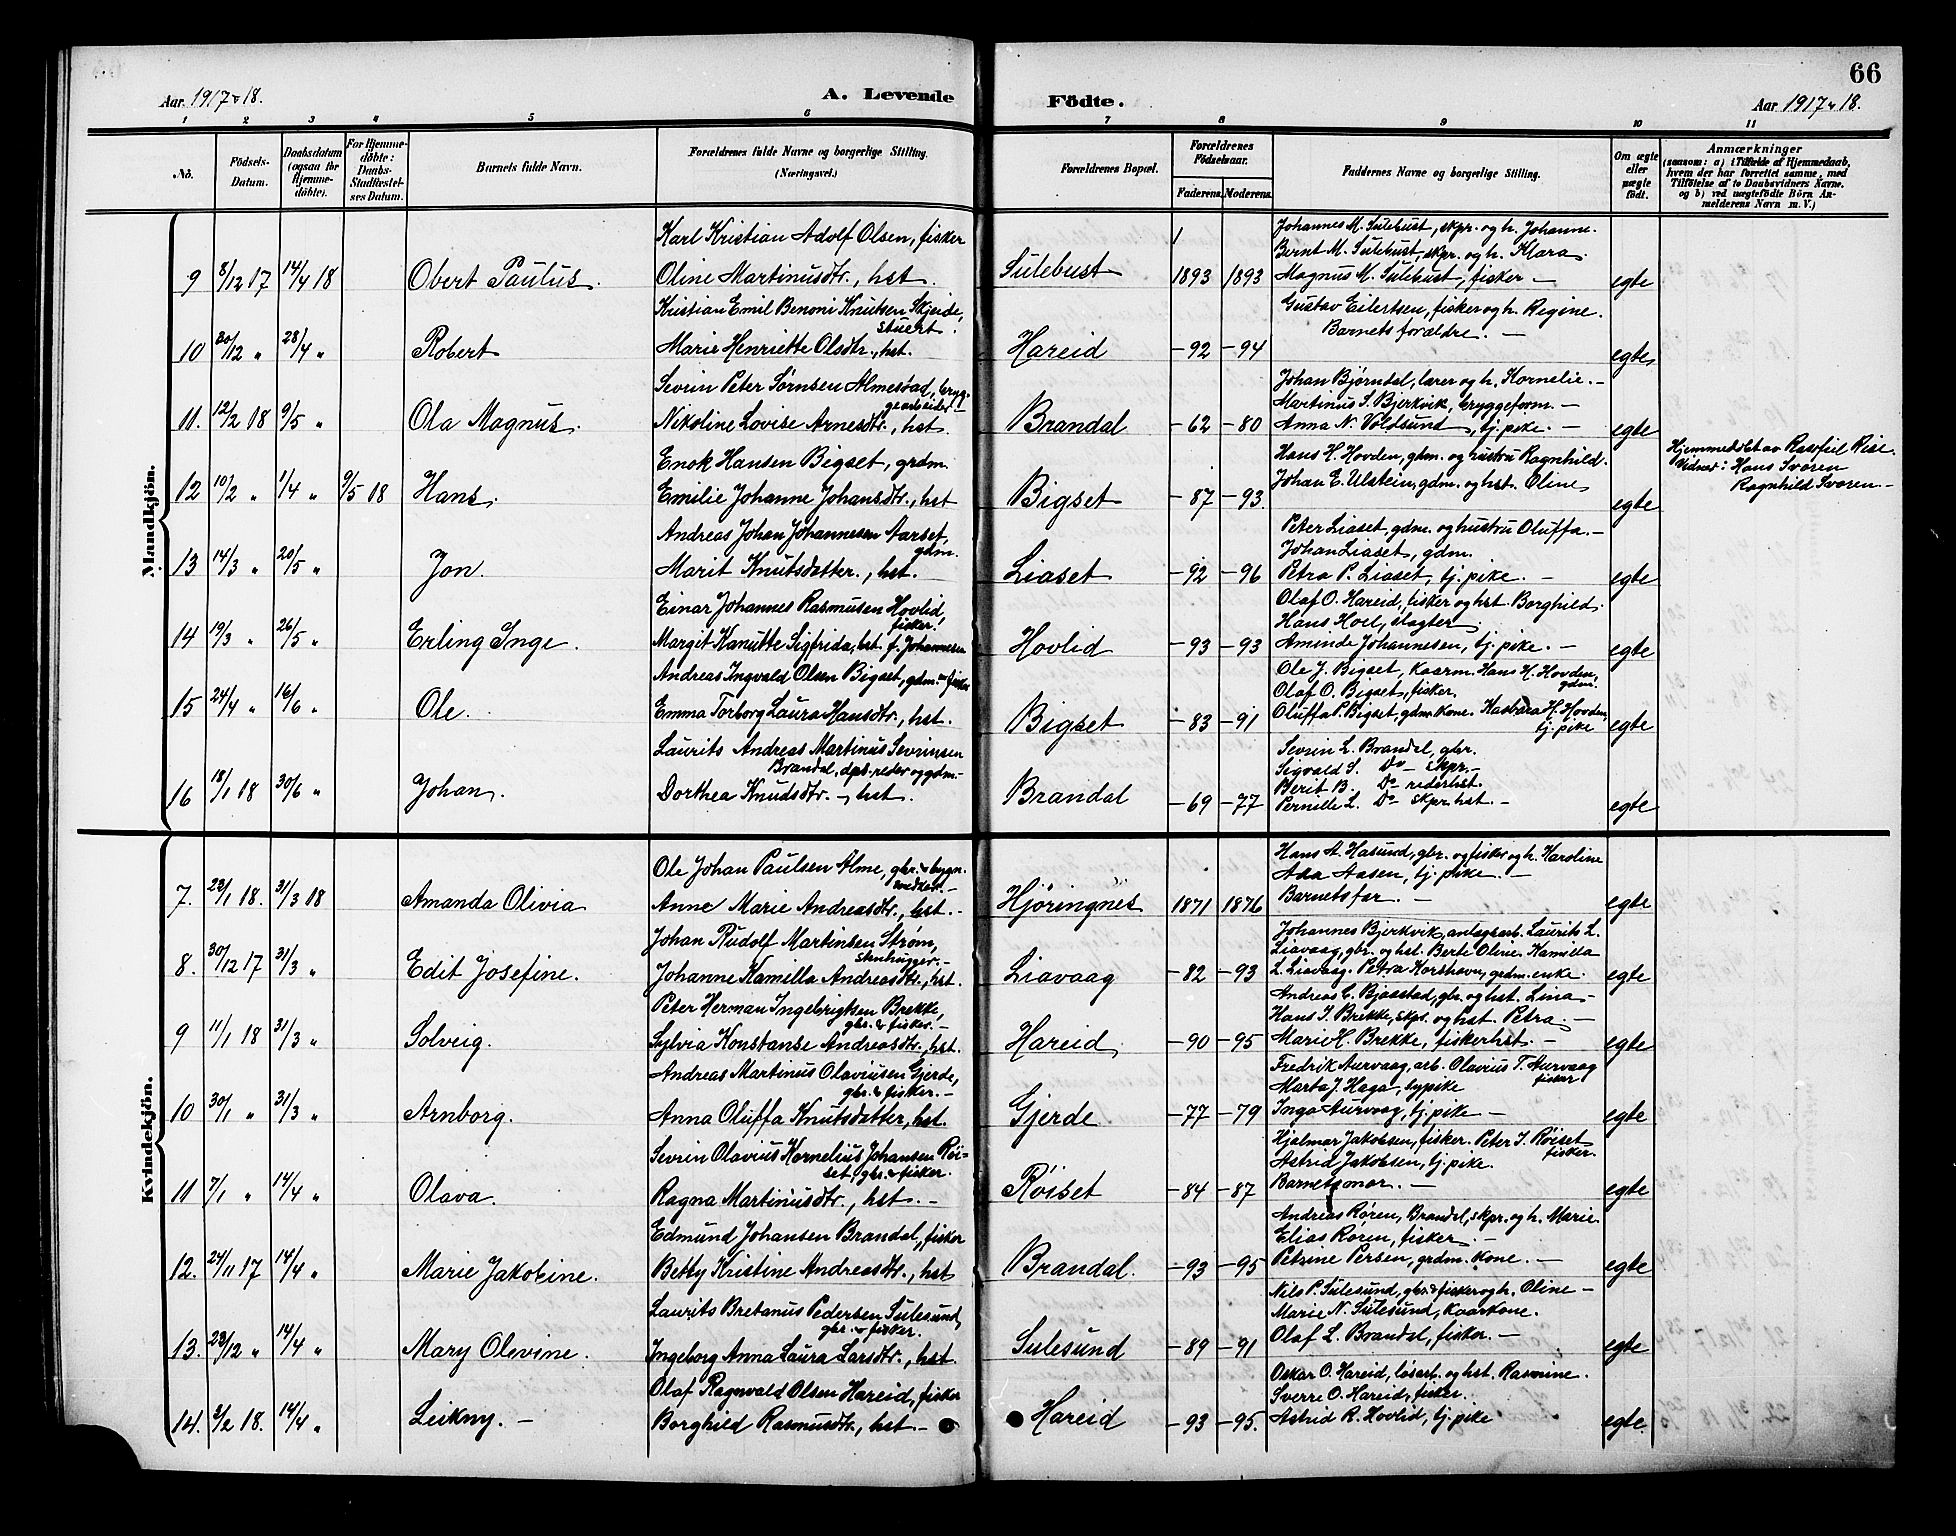 66
Aar. 1917 & 18.
A. Levende Födte.
Aar 1917 & 18.
1 2 3 4 5 6 7 8 9 10 11
No.
Födsels-Datum.
Daabsdatum (ogsaa for Hjemme-döbte).
For Hjemme-döbte: Daabs-Stadfæstel-ses Datum.
Barnets fulde Navn.
Forældrenes fulde Navne og borgerlige Stilling. (Næringsvei.)
Forældrenes Bopæl.
Forældrenes Födselsaar.
Faderens. Moderens.
Faddernes Navne og borgerlige Stilling.
Om ægte eller uægte födt.
Anmærkninger
(saasom: a) i Tilfælde af Hjemmedaab, hvem der har forrettet samme, med Tilföielse af to Daabsvidners Navne, og b) ved uægtefödte Börn An-melderens Navn m. V.)
Mandkjön.
9 8/12 17 14/4 18 Obert Paulus.
Karl Kristian Adolf Olsen, fisker
Oline Martinusdtr., hst.
Sulebust 1893 1893
Johannes M. Sulebust, skpr. og h. Johanne.
Bernt M. Sulebust, skpr. og h. Klara.
Magnus M. Sulebust, fisker –
egte
10 20/12 " 28/4 " Robert
Kristian Emil Benoni Knutsen Skjeide,
stuert.
Marie Henriette Olsdtr., hst.
Hareid –92 –94
Gustav Eilertsen, fisker og h. Regine.
Barnets forældre. –
egte
11. 12/2 18 9/5 " Ola Magnus.
Sevrin Peter Sørnsen Almestad, bryg-
gearbeider –
Nikoline Lovise Arnesdtr., hst.
Brandal –62 –80
Johan Bjørndal, lærer og h. Kornelie. –
Martinus S. Bjerkvik, bryggeform. –
Anna N. Voldsund, tj. pike. –
egte
12 10/2 " 1/4 " 9/5 18 Hans.
Enok Hansen Bigset, grdm.
Emilie Johanne Johansdtr., hst
Bigset –87 –93.
Hans H. Hovden, gdm. og hustru Ragnhild.
Johan E. Ulstein, gdm. og hst. Oline
egte
Hjemmedøbt av Rise.
Vidner: Hans Svoren
Ragnhild Svoren. –
13 14/3 " 20/5 " Jon.
Andreas Johan Johannessen Aarset,
gdm.
Marit Knutsdatter., hst.
Liaset –92 –96
Peter Liaset, gdm. og hustru Oluffa. –
Johan Liaset, gdm.
Petra P. Liaset, tj. pike. –
egte
14 19/3 " 26/5 " Erling Inge.
Einar Johannes Rasmusen Hovlid,
fisker.
Margit Kanutte Sigfrida, hst. f. Johannesen
Hovlid –93 –93
Olaf O. Hareid, fisker og hst. Borghild.
Hans Hoel, slagter.
Aminde Johannesen, tj. pike. –
egte
15 24/4 " 16/6 " Ole.
Andreas Ingvald Olsen Bigset, gdm. & fisker
Emma Torborg Laura Hansdtr., hst.
Bigset –83 –91
Ole J. Bigset, kaarm. Hans H. Hovden,
gdm.
Olaf O. Bigset, fisker.
Oluffa P. Bigset, gdm. kone. Kasbara H. Hovden,
tj. pike
egte
16 18/1 18 30/6 " Johan.
Laurits Andreas Martinus Sevrinsen
Brandal, dpb. reder og gdm. –
Dorthea Knudsdtr. –, hst.
Brandal –69 –77
Sevrin L. Brandal, gbr.
Sigvald S. Do – skpr. –
Berit B. Do – rederhst.
Pernille L. Do – skpr. hst. –
egte
Kvindekjön.
7. 23/1 18. 31/3 18 Amanda Olivia
Ole Johan Paulsen Alme, gbr. & bygn.
Anne Marie Andreasdtr., hst. –
Hjøringnes 1871 1876
Hans A. Hasund, gbr. og fisker og h. Karoline
Ada Aasen, tj. pike. –
Barnets far. –
egte
8. 30/12 17 31/3 " Edit Josefine.
Johan Rudolf Martinsen Strøm,
stenhugger. –
Johanne Kamilla Andreasdtr., hst.
Liavaag –82 –93
Johannes Bjerkvik, anlægsarb. Laurits L.
Liavaag, gbr. og hst. Berte Oline. Kamilla
L. Liavaag. Petra Korshavn, grdm. enke.
egte
9 11/1 18 31/3 " Solveig.
Peter Herman Ingebrigtsen Brekke,
gbr. & fisker. –
Sylvia Konstanse Andreasdtr., hst.
Hareid. –90 –95
Andreas E. Bjaastad, gbr. og hst. Lina –
Hans I. Brekke, skpr. og hst. Petra. –
Marie H. Brekke, fiskerhst. –
egte
10 30/1 " 31/3 " Arnborg.
Andreas Martinus Olaviusen Gjerde,
gbr. & fisker. –
Anna Oluffa Knutsdatter, hst.
Gjerde –77 –79
Fredrik Aurvaag, arb. Olavius T. Aurvaag
fisker
Marta J. Haga, sypike
Inga Aurvaag, tj. pike –
egte
11 7/1 " 14/4 " Olava.
Sevrin Olavius Kornelius Johansen Røi=
set, gbr. & fisker.
Ragna Martinusdtr., hst. –
Røiset –84 –87
Hjalmar Jakobsen, fisker. Peter I. Røiset
fisker.
Astrid Jakobsen, tj. pike.
Barnets mor. –
egte
12. 24/11 17 14/4 " Marie Jakobine.
Edmund Johansen Brandal, fisker
Betty Kristine Andreasdtr., hst
Brandal. –93 –95
Andreas Røren, Brandal, skpr. og h. Marie
Elias Røren, fisker. –
Petrine Persen, grdm. kone. –
egte
13. 23/12 " 14/4 " Mary Olevine.
Laurits Bretanus Pedersen Sulesund,
gbr. & fisker.
Ingeborg Anna Laura Larsdtr., hst
Sulesund –89 –91
Nils P. Sulesund, gbr. & fisker og h. Oline –
Marie N. Sulesund, kaarkone.
Olaf L. Brandal, fisker. –
egte
14. 2/2 18. 14/4 " Leikny. –
Olaf Ragnvald Olsen Hareid, fisker
Borghild Rasmusdtr., hst –
Hareid –93 –95.
Oskar O. Hareid, løsarb. og hst. Rasmine.
Sverre O. Hareid, fisker.
Astrid R. Hovlid, tj. pike
egte.